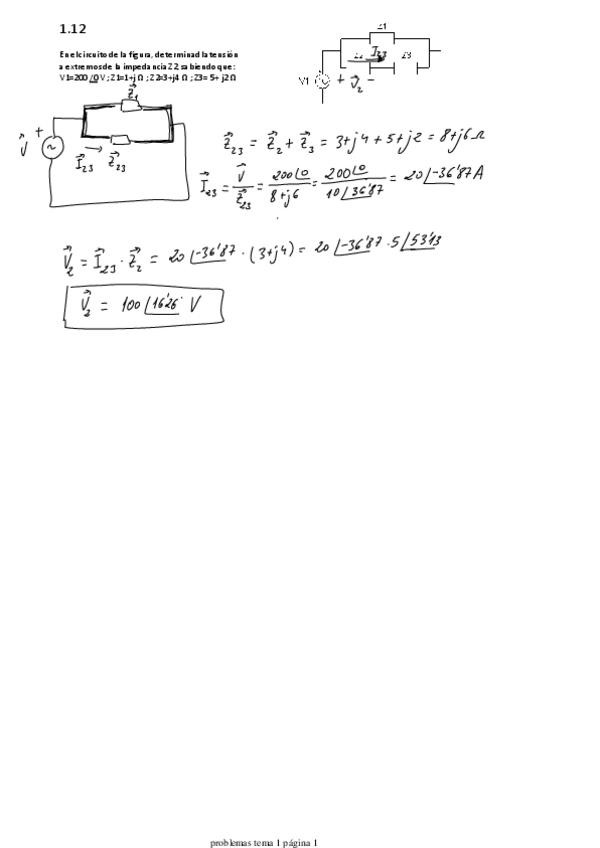 1.12
En el circuito de la figura, determinad la tensión
a extremos de la impedancia Z2, sabiendo que:
V1=200 /0 V ; Z1=1+j Ω ; Z2=3+j4 Ω ; Z3= 5+ j2 Ω
Z1
I23
Z3
V1
+ V⃗2 -
Z⃗1
V⃗ +
I⃗23 Z⃗23
Z⃗23 = Z⃗2 + Z⃗3 = 3+j4 + 5+j2 = 8+j6 Ω
I⃗23 = V⃗/Z⃗23 = 200∠0/8+j6 = 200∠0/10∠36'87 = 20∠-36'87 A
V⃗2 = I⃗23 · Z⃗2 = 20∠-36'87 · (3+j4) = 20∠-36'87 · 5∠53'13
V⃗2 = 100∠16'26 V
problemas tema 1 página 1